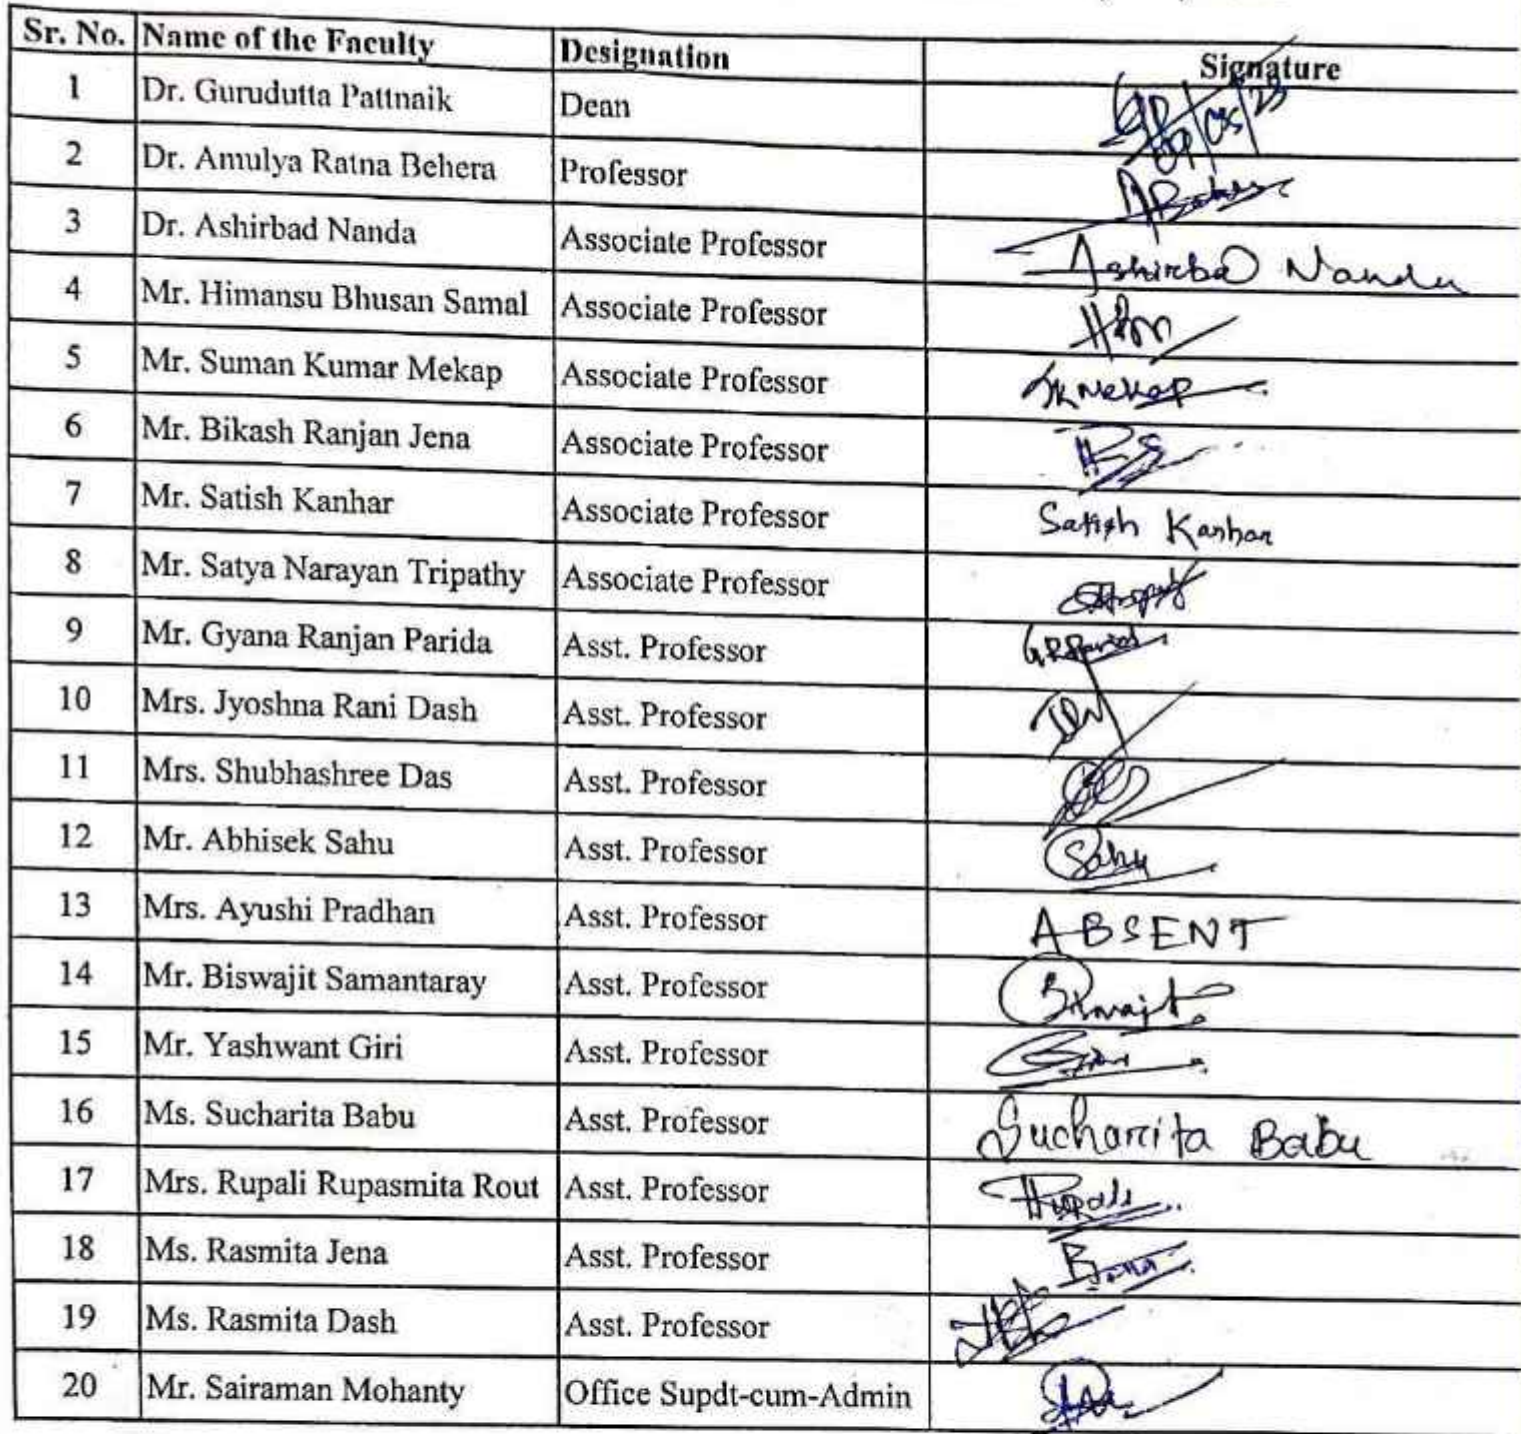 Sr. No. Name of the Faculty Designation Signature
1 Dr. Gurudutta Pattnaik Dean
2 Dr. Amulya Ratna Behera Professor
3 Dr. Ashirbad Nanda Associate Professor Ashirbad Nanda
4 Mr. Himansu Bhusan Samal Associate Professor
5 Mr. Suman Kumar Mekap Associate Professor SKMekap
6 Mr. Bikash Ranjan Jena Associate Professor
7 Mr. Satish Kanhar Associate Professor Satish Kanhar
8 Mr. Satya Narayan Tripathy Associate Professor
9 Mr. Gyana Ranjan Parida Asst. Professor GRParida
10 Mrs. Jyoshna Rani Dash Asst. Professor
11 Mrs. Shubhashree Das Asst. Professor
12 Mr. Abhisek Sahu Asst. Professor Sahu
13 Mrs. Ayushi Pradhan Asst. Professor ABSENT
14 Mr. Biswajit Samantaray Asst. Professor Biswajit
15 Mr. Yashwant Giri Asst. Professor
16 Ms. Sucharita Babu Asst. Professor Sucharita Babu
17 Mrs. Rupali Rupasmita Rout Asst. Professor Rupali
18 Ms. Rasmita Jena Asst. Professor
19 Ms. Rasmita Dash Asst. Professor
20 Mr. Sairaman Mohanty Office Supdt-cum-Admin